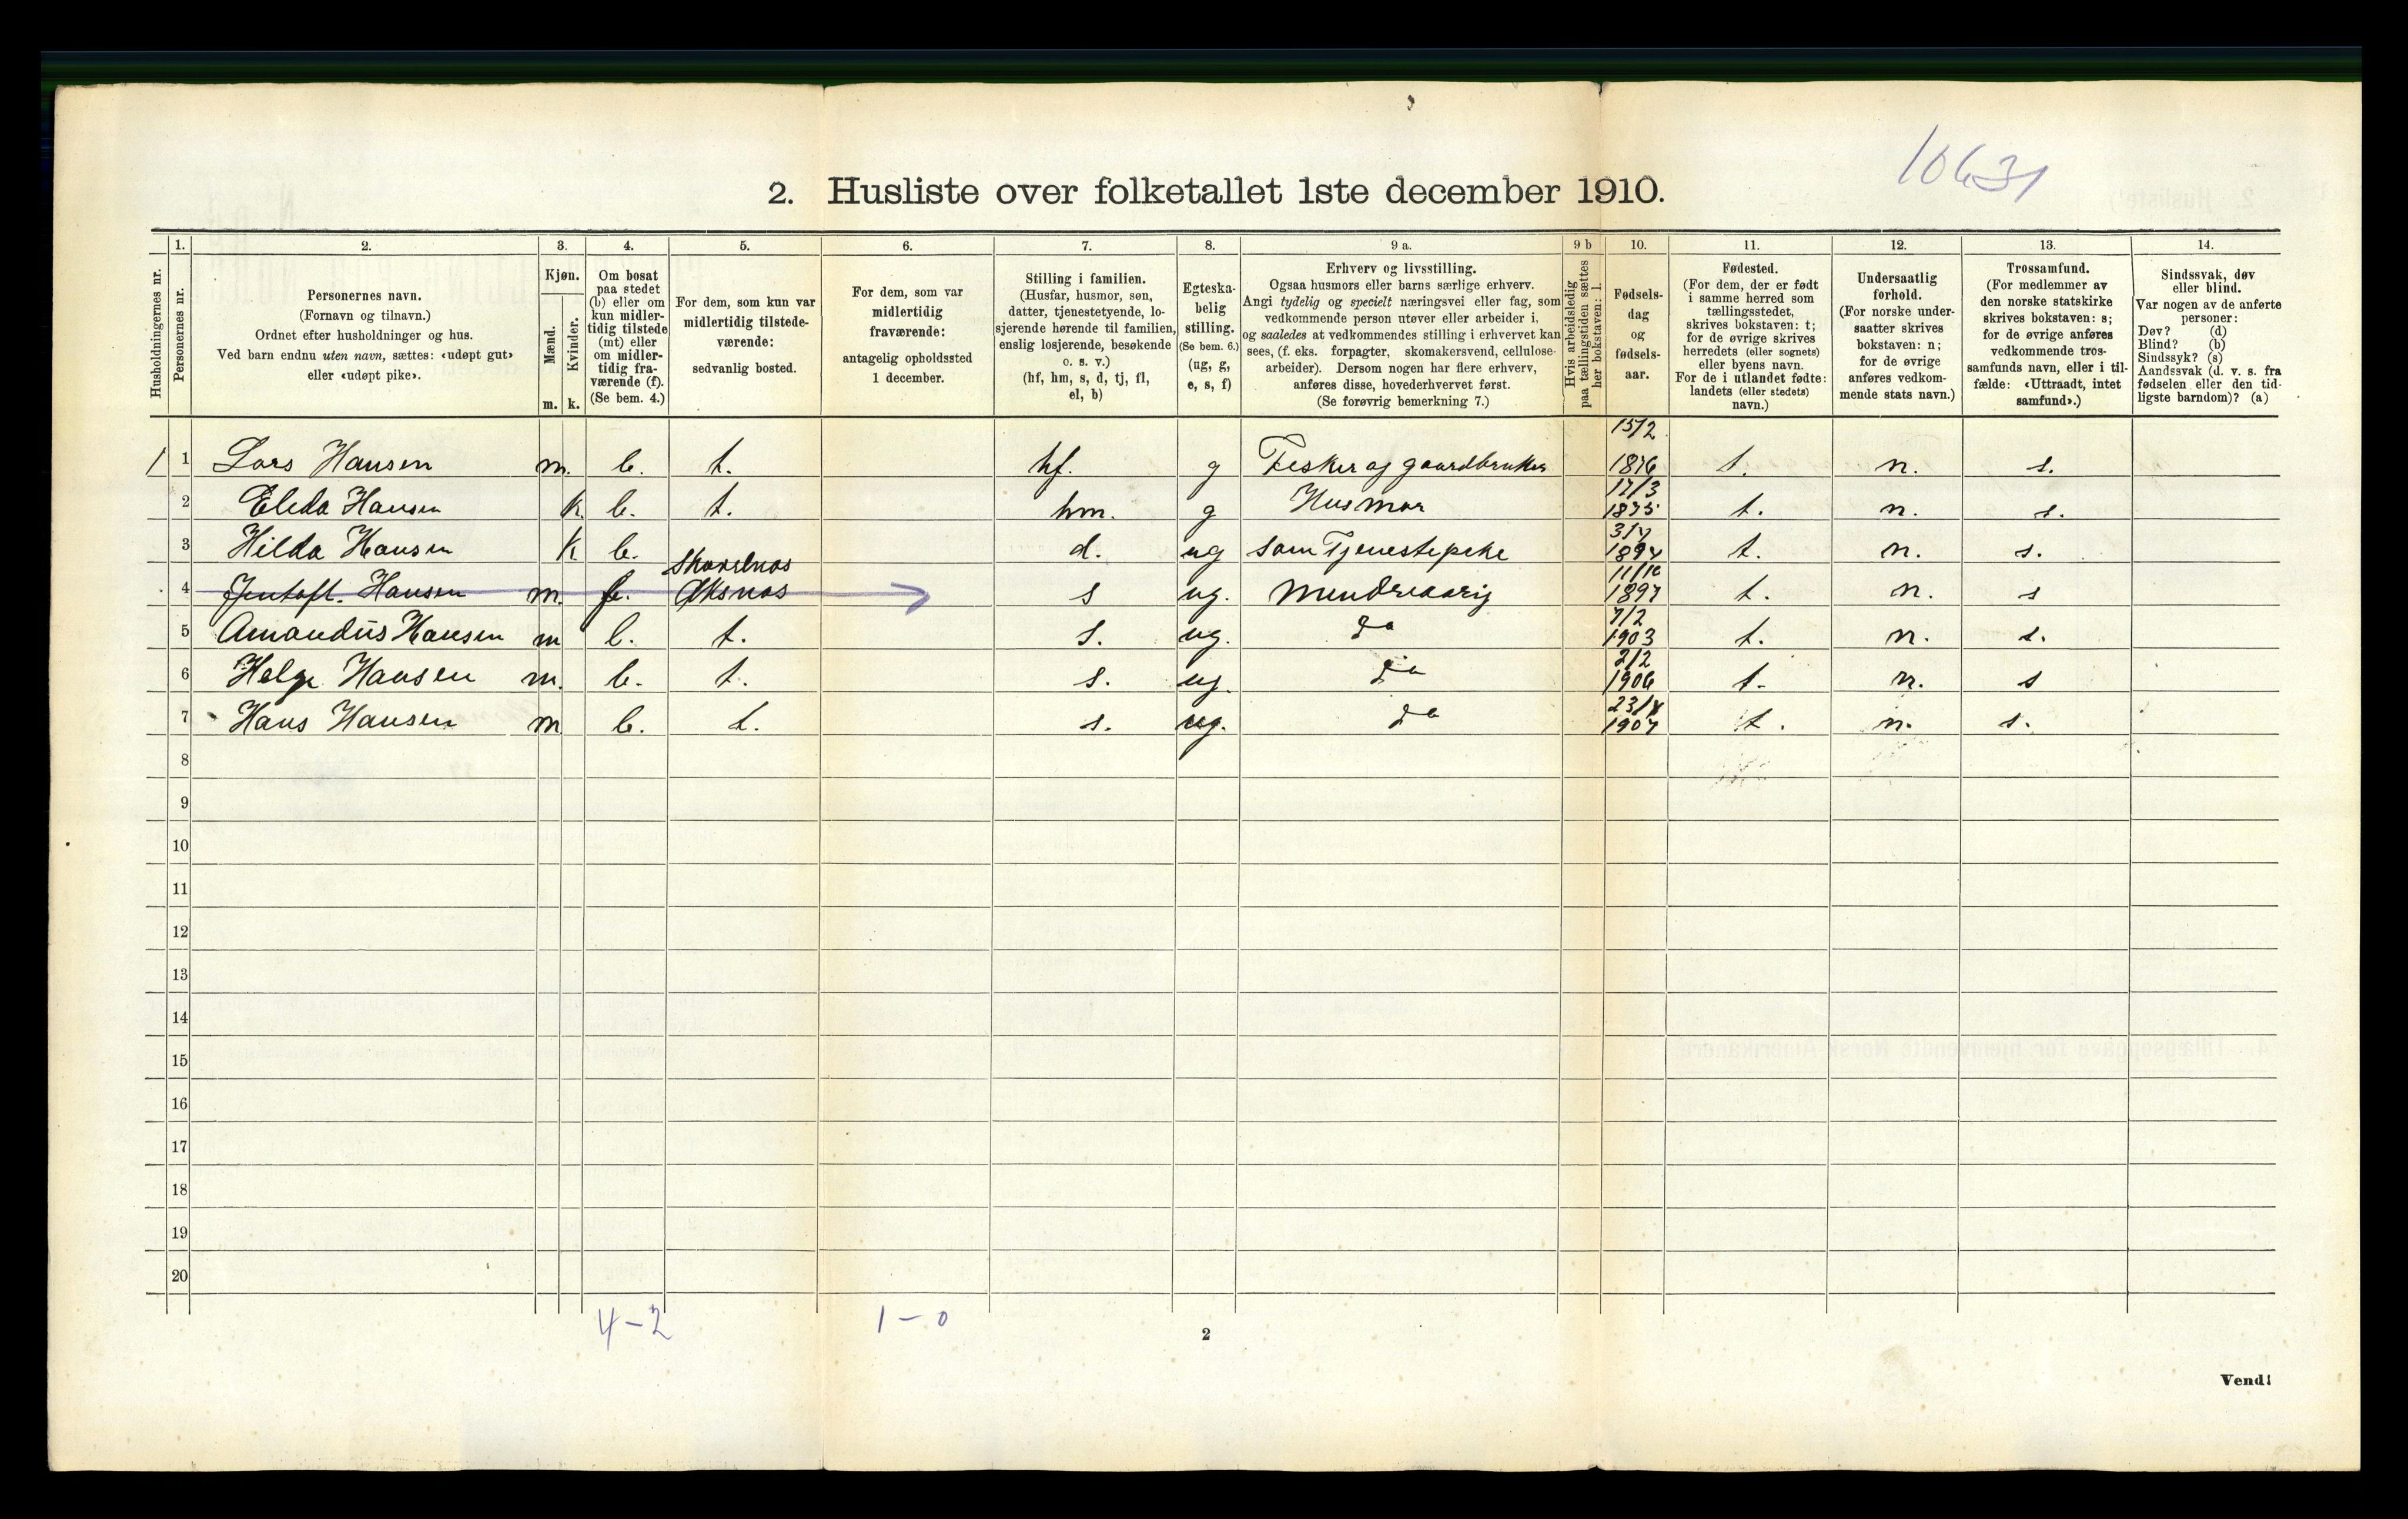 10631
2. Husliste over folketallet 1ste december 1910.
Husholdningernes nr.
1.
Personernes nr.
2.
Personernes navn.
(Fornavn og tilnavn.)
Ordnet efter husholdninger og hus.
Ved barn endnu uten navn, sættes: «udøpt gut»
eller «udøpt pike».
3.
Kjøn.
Mænd.
Kvinder.
m. k.
4.
Om bosat
paa stedet
(b) eller om
kun midler-
tidig tilstede
(mt) eller
om midler-
tidig fra-
værende (f).
(Se bem. 4.)
5.
For dem, som kun var
midlertidig tilstede-
værende:
sedvanlig bosted.
6.
For dem, som var
midlertidig
fraværende:
antagelig opholdssted
1 december.
7.
Stilling i familien.
(Husfar, husmor, søn,
datter, tjenestetyende, lo-
sjerende hørende til familien,
enslig losjerende, besøkende
o. s. v.)
(hf, hm, s, d, tj, fl,
el, b)
8.
Egteska-
belig
stilling.
(Se bem. 6.)
(ug, g,
e, s, f)
9 a.
Erhverv og livsstilling.
Ogsaa husmors eller barns særlige erhverv.
Angi tydelig og specielt næringsvei eller fag, som
vedkommende person utøver eller arbeider i,
og saaledes at vedkommendes stilling i erhvervet kan
sees, (f. eks. forpagter, skomakersvend, cellulose-
arbeider). Dersom nogen har flere erhverv,
anføres disse, hovederhvervet først.
(Se forøvrig bemerkning 7.)
9 b
Hvis arbeidsledig
paa tællingstiden sættes
her bokstaven: l.
10.
Fødsels-
dag
og
fødsels-
aar.
11.
Fødested.
(For dem, der er født
i samme herred som
tællingsstedet,
skrives bokstaven: t;
for de øvrige skrives
herredets (eller sognets)
eller byens navn.
For de i utlandet fødte:
landets (eller stedets)
navn.)
12.
Undersaatlig
forhold.
(For norske under-
saatter skrives
bokstaven: n;
for de øvrige
anføres vedkom-
mende stats navn.)
13.
Trossamfund.
(For medlemmer av
den norske statskirke
skrives bokstaven: s;
for de øvrige anføres
vedkommende tros-
samfunds navn, eller i til-
fælde: «Uttraadt, intet
samfund».)
14.
Sindssvak, døv
eller blind.
Var nogen av de anførte
personer:
Døv? (d)
Blind? (b)
Sindssyk? (s)
Aandssvak (d. v. s. fra
fødselen eller den tid-
ligste barndom)? (a)
15/2
1 1 Lars Hansen m. b. t. hf. g Fesker og gaardbruker 1876 t. n. s.
17/3
2 Eleda Hansen k. b. t. hm. g Husmor 1875 t. n. s.
3/4
3 Hilda Hansen k b. d. ug som Tjenestepeke 1894 t. n. s.
Skarelnas 11/10
4 Jentoft Hansen m. f. Øksnas s ug. Mendreaarig 1897 t. n. s
7/2
5 Amandus Hansen m b. t. s. ug. Do 1903 t. n. s.
2/2
6 Helge Hansen m. b. t. s. ug. Do 1906 t. n. s
23/8
7 Hans Hansen m b. t. s. ug. Do 1907 t. n. s.
8
9
10
11
12
13
14
15
16
17
18
19
20
4-2 1-0
2
Vend!